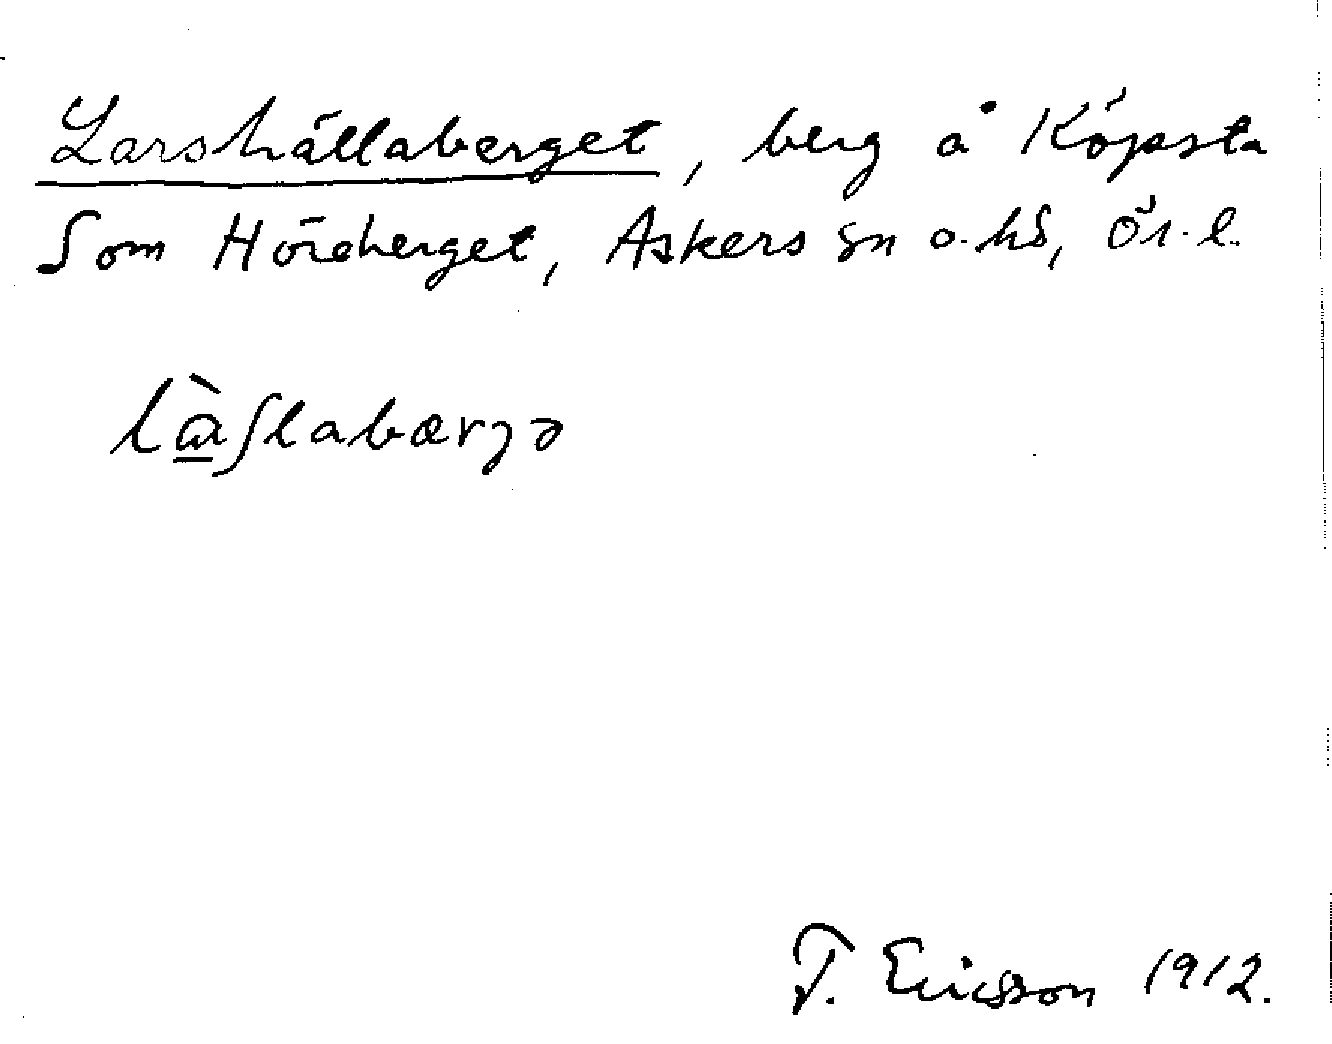 Larshällaberget, berg å Köpsta
Som Höreberget, Askers sn o. hd, Ör. l.
lɑ̱̀ʃlabærjə
T. Ericsson 1912.